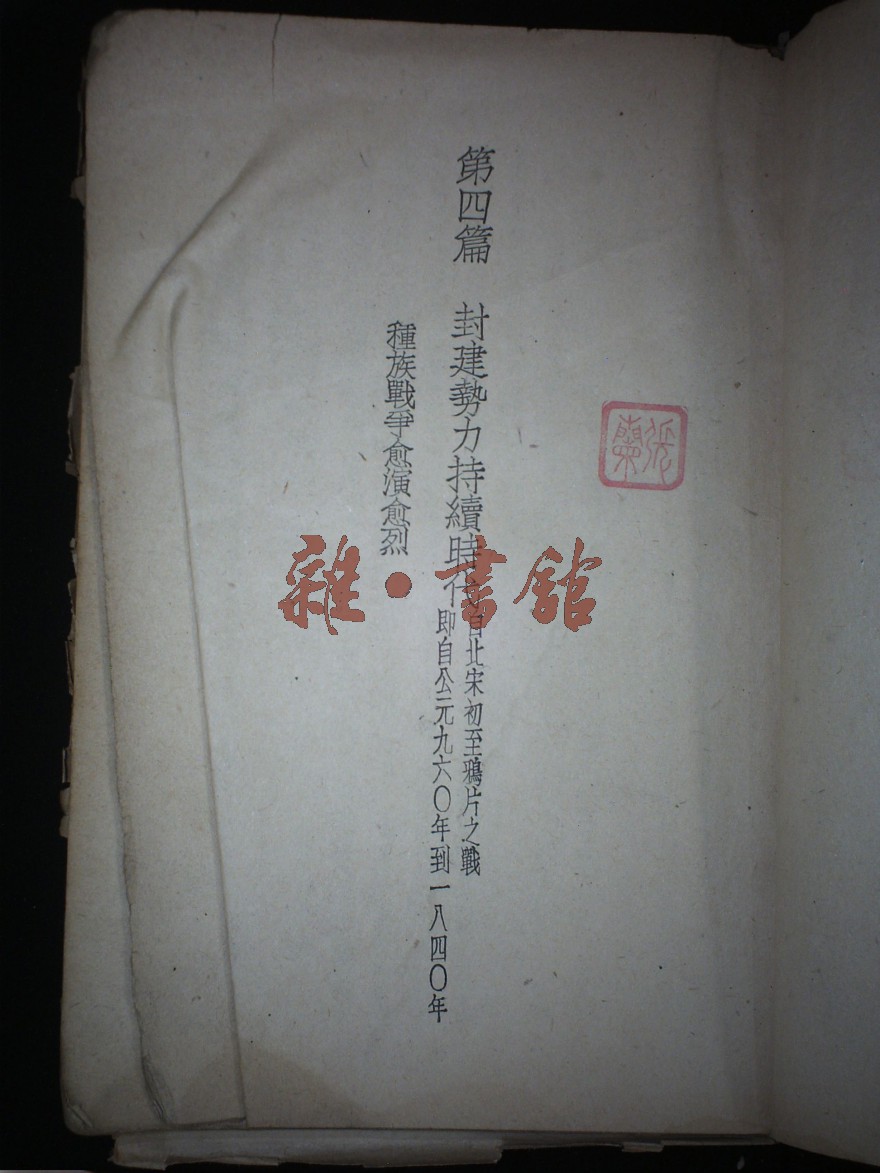 第四篇 封建勢力持續時代
自北宋初至鴉片之戰
即自公元九六〇年到一八四〇年
種族戰爭愈演愈烈
雜·書館